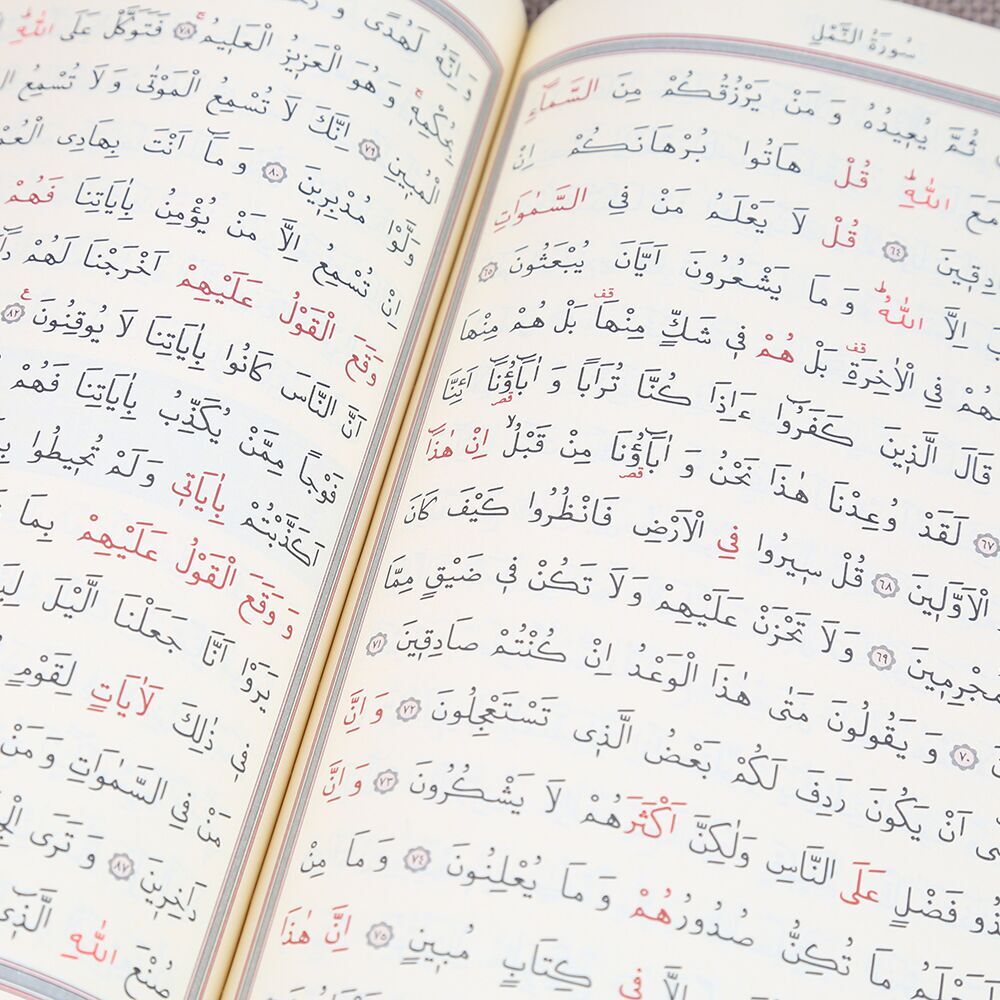 سُورَةُ النَّمْلِ
ثُمَّ يُعٖيدُهُ وَ مَنْ يَرْزُقُكُمْ مِنَ السَّمَٓاءِ
مَعَ اللّٰهِ قُلْ هَاتُوا بُرْهَانَكُمْ اِنْ
٦٤ قُلْ لَا يَعْلَمُ مَنْ فِي السَّمٰوَاتِ
اِلَّا اللّٰهُ وَ مَا يَشْعُرُونَ اَيَّانَ يُبْعَثُونَ ٦٥
فِي الْاٰخِرَةِ بَلْ هُمْ فٖي شَكٍّ مِنْهَا بَلْ هُمْ مِنْهَا
قَالَ الَّذٖينَ كَفَرُٓوا ءَاِذَا كُنَّا تُرَابًا وَ اٰبَٓاؤُنَٓا اَئِنَّا
٦٧ لَقَدْ وُعِدْنَا هٰذَا نَحْنُ وَ اٰبَٓاؤُنَا مِنْ قَبْلُ اِنْ هٰذَٓا
الْاَوَّلٖينَ ٦٨ قُلْ سٖيرُوا فِي الْاَرْضِ فَانْظُرُوا كَيْفَ كَانَ
٦٩ وَلَا تَحْزَنْ عَلَيْهِمْ وَلَا تَكُنْ فٖي ضَيْقٍ مِمَّا
٧٠ وَ يَقُولُونَ مَتٰى هٰذَا الْوَعْدُ اِنْ كُنْتُمْ صَادِقٖينَ ٧١
اَنْ يَكُونَ رَدِفَ لَكُمْ بَعْضُ الَّذٖي تَسْتَعْجِلُونَ ٧٢ وَ اِنَّ
فَضْلٍ عَلَى النَّاسِ وَلٰكِنَّ اَكْثَرَهُمْ لَا يَشْكُرُونَ ٧٣ وَ اِنَّ
مَا تُكِنُّ صُدُورُهُمْ وَ مَا يُعْلِنُونَ ٧٤ وَ مَا مِنْ
اِلَّا فٖي كِتَابٍ مُبٖينٍ ٧٥ اِنَّ هٰذَا
وَ اِنَّهُ لَهُدًى وَ
بِحُكْمِهٖ وَ هُوَ الْعَزٖيزُ الْعَلٖيمُ ٧٨ فَتَوَكَّلْ عَلَى اللّٰهِ
الْمُبٖينِ ٧٩ اِنَّكَ لَا تُسْمِعُ الْمَوْتٰى وَلَا تُسْمِعُ
وَلَّوْا مُدْبِرٖينَ ٨٠ وَ مَٓا اَنْتَ بِهَادِي
اِنْ تُسْمِعُ اِلَّا مَنْ يُؤْمِنُ بِاٰيَاتِنَا فَهُمْ
وَقَعَ الْقَوْلُ عَلَيْهِمْ اَخْرَجْنَا لَهُمْ
اَنَّ النَّاسَ كَانُوا بِاٰيَاتِنَا لَا يُوقِنُونَ ٨٢
فَوْجًا مِمَّنْ يُكَذِّبُ بِاٰيَاتِنَا فَهُمْ
اَكَذَّبْتُمْ بِاٰيَاتٖي وَلَمْ تُحٖيطُوا
وَ وَقَعَ الْقَوْلُ عَلَيْهِمْ بِمَا
يَرَوْا اَنَّا جَعَلْنَا الَّيْلَ
فٖي ذٰلِكَ لَاٰيَاتٍ لِقَوْمٍ
مَنْ فِي السَّمٰوَاتِ وَ مَنْ
دَاخِرٖينَ ٨٧ وَ تَرَى
صُنْعَ اللّٰهِ الَّذٖٓي